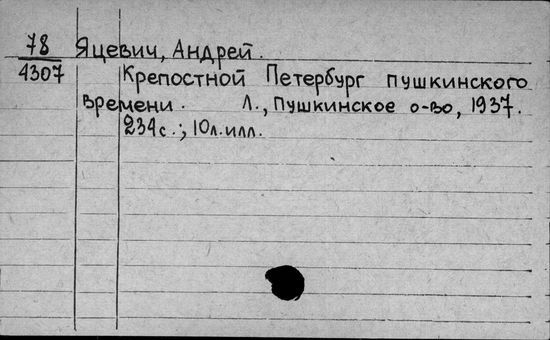 78 Яцевич, Андрей.
4307 Крепостной Петербург пушкинского
времени. Л., Пушкинское о-во, 1937.
234 с.; 10 л. илл.